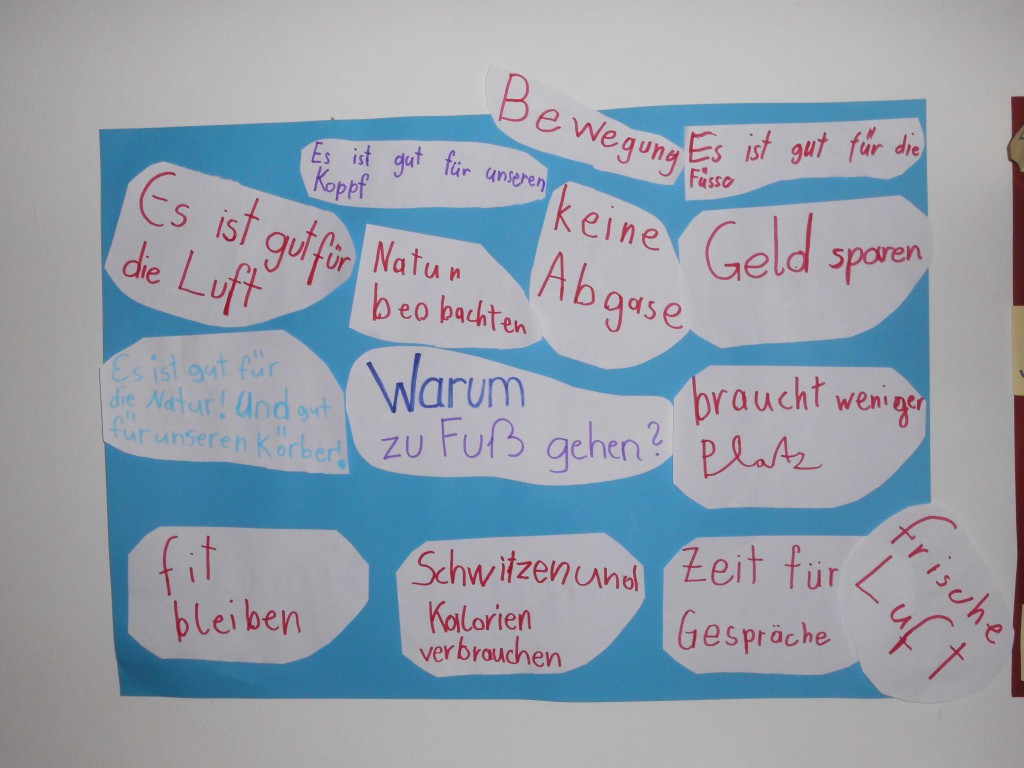 Bewegung
Es ist gut für unseren
Koppf
Es ist gut für die
Füsse
Es ist gut für
die Luft
Natur
beobachten
keine
Abgase
Geld sparen
Es ist gut für
die Natur! Und gut
für unseren Körber!
Warum
zu Fuß gehen?
braucht weniger
Platz
fit
bleiben
Schwitzen und
Kalorien
verbrauchen
Zeit für
Gespräche
frische
Luft